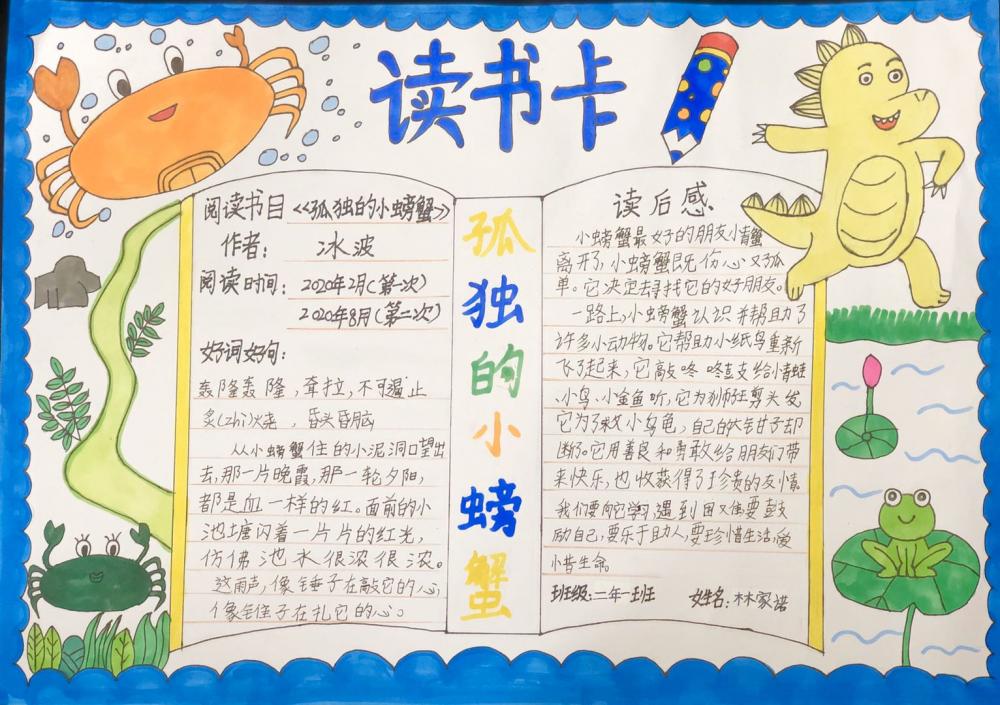 读书卡
阅读书目 《孤独的小螃蟹》
作者： 冰波
阅读时间： 2020年2月(第一次)
2020年8月(第二次)
好词好句：
轰隆轰隆，耷拉，不可遏止
炙(zhì)烤，昏头昏脑
从小螃蟹住的小泥洞口望出
去，那一片晚霞，那一轮夕阳，
都是血一样的红。面前的小
池塘闪着一片片的红光，
仿佛池水很浓很浓。
这雨声，像锤子在敲它的心，
像锥子在扎它的心。
孤独的小螃蟹
读后感
小螃蟹最好的朋友小青蟹
离开了，小螃蟹既伤心又孤
单。它决定去寻找它的好朋友。
一路上，小螃蟹认识并帮助了
许多小动物。它帮助小纸鸟重新
飞了起来，它敲咚咚支给小青蛙
、小鸟、小金鱼听，它为狮王剪头发
，它为了救小乌龟，自己的大钳子却
断了。它用善良和勇敢给朋友们带
来快乐，也收获得了珍贵的友情。
我们要向它学习，遇到困难要鼓
励自己，要乐于助人，要珍惜生活，爱
惜生命。
班级：二年一班 姓名：林家诺